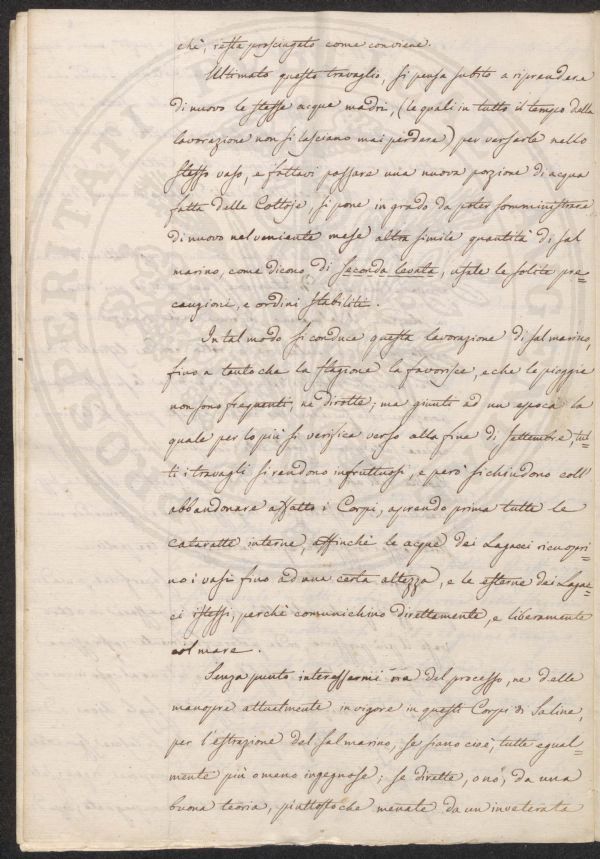 chè, resta prosciugato come conviene.
Ultimato questo travaglio, si pensa subito a riprendere
di nuovo le stesse acque madri, (le quali in tutto il tempo della
lavorazione non si lasciano mai perdere) per versarle nello
stesso vaso, e fattavi passare una nuova porzione di acqua
fatta delle Cottoje, si pone in grado da poter somministrare
di nuovo nel veniente mese altra simile quantità di sal
marino, come dicono di seconda levata, usate le solite pre=
cauzioni, e ordini stabiliti.
In tal modo si conduce questa lavorazione di sal marino,
fino a tanto che la stagione la favorisce, e che le pioggie
non sono frequenti, ne dirotte; ma giunti ad un epoca la
quale per lo più si verifica verso alla fine di settembre, tut=
ti i travagli si rendono infruttuosi, e però si chiudono coll'
abbandonare affatto i Corpi, aprendo prima tutte le
cataratte interne, affinchè le acque dei Lagacci ricuopri=
no i vasi fino ad una certa altezza, e le esterne dei Lagac=
ci istessi, perchè comunichino direttamente, e liberamente
col mare.
Senza punto interessarmi ora del processo, ne delle
manopre attualmente in vigore in questi Corpi di Saline,
per l'estrazione del sal marino, se siano cioè, tutte egual=
mente più o meno ingegnose; se dirette, o nò, da una
buona teoria, piuttosto che menate da un inveterata
PROSPERITATI PUBLICAE